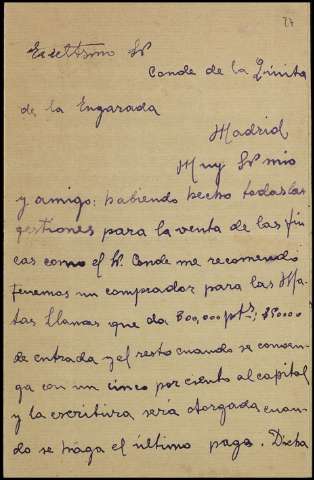 27
Excttsmo Sr
Conde de la Quinta
de la Enjarada
Madrid
Muy Sr mio
y amigo: habiendo hecho todas las
gestiones para la venta de las fin-
cas como el Sr. Conde me recomendó
tenemos un comprador para las Ma-
tas llamas que da 800,000 pts;
de entrada y el resto cuando se conven-
ga con un cinco por ciento al capital
y la escritura será otorgada cuan-
do se haga el último pago. Dicha